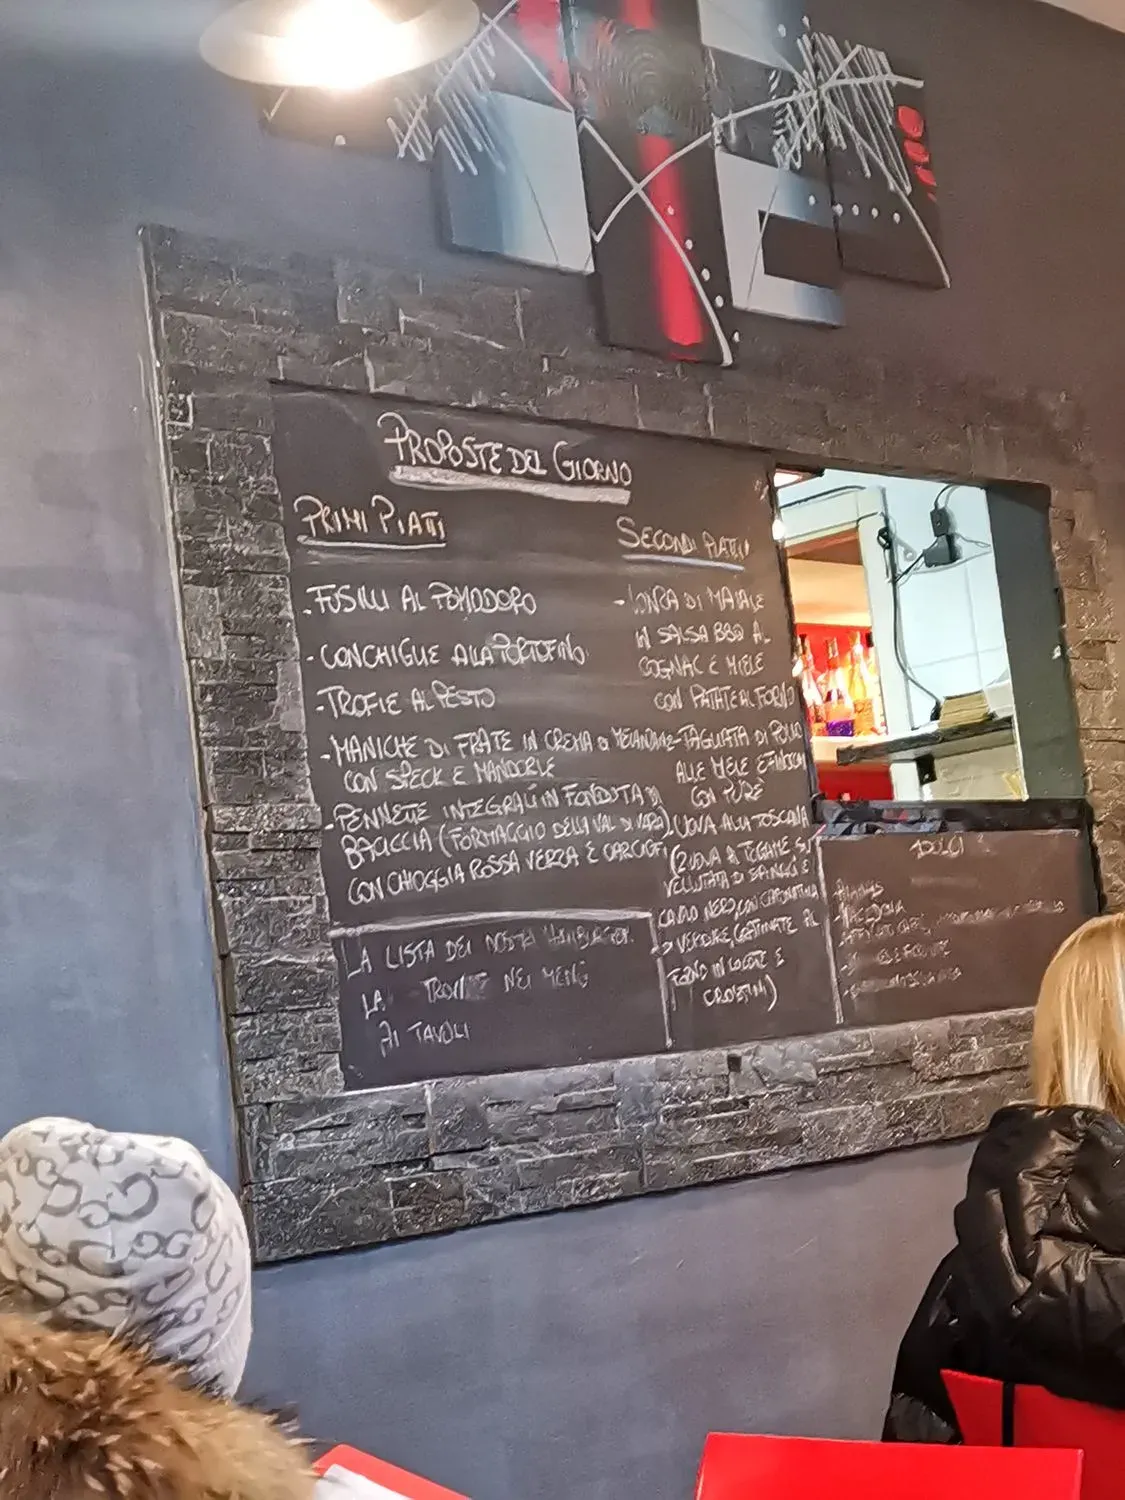 PROPOSTE DEL GIORNO
PRIMI PIATTI
- FUSILLI AL POMODORO
- CONCHIGLIE ALLA PORTOFINO
- TROFIE AL PESTO
- MANICHE DI FRATE IN CREMA DI MELANZANE
CON SPECK E MANDORLE
- PENNETTE INTEGRALI IN FONDUTA DI
BACICCIA (FORMAGGIO DELLA VAL DI VARA)
CON CHIOGGIA ROSSA VERZA E CARCIOFI
SECONDI PIATTI
- LONZA DI MAIALE
IN SALSA BBQ AL
COGNAC E MIELE
CON PATATE AL FORNO
- TAGLIATA DI POLLO
ALLE MELE E FINOCCHI
CON PURÈ
- UOVA ALLA TOSCANA
(2 UOVA AL TEGAME SU
VELLUTATA DI SPINACI E
CAVOLO NERO, CON
DI VERDURE, GRATINATE AL
FORNO IN COCOTTE E
CROSTINI)
LA LISTA DEI NOSTRI HAMBURGER
LA TROVATE NEI MENÙ
AI TAVOLI
DOLCI
- ANANAS
- MACEDONIA